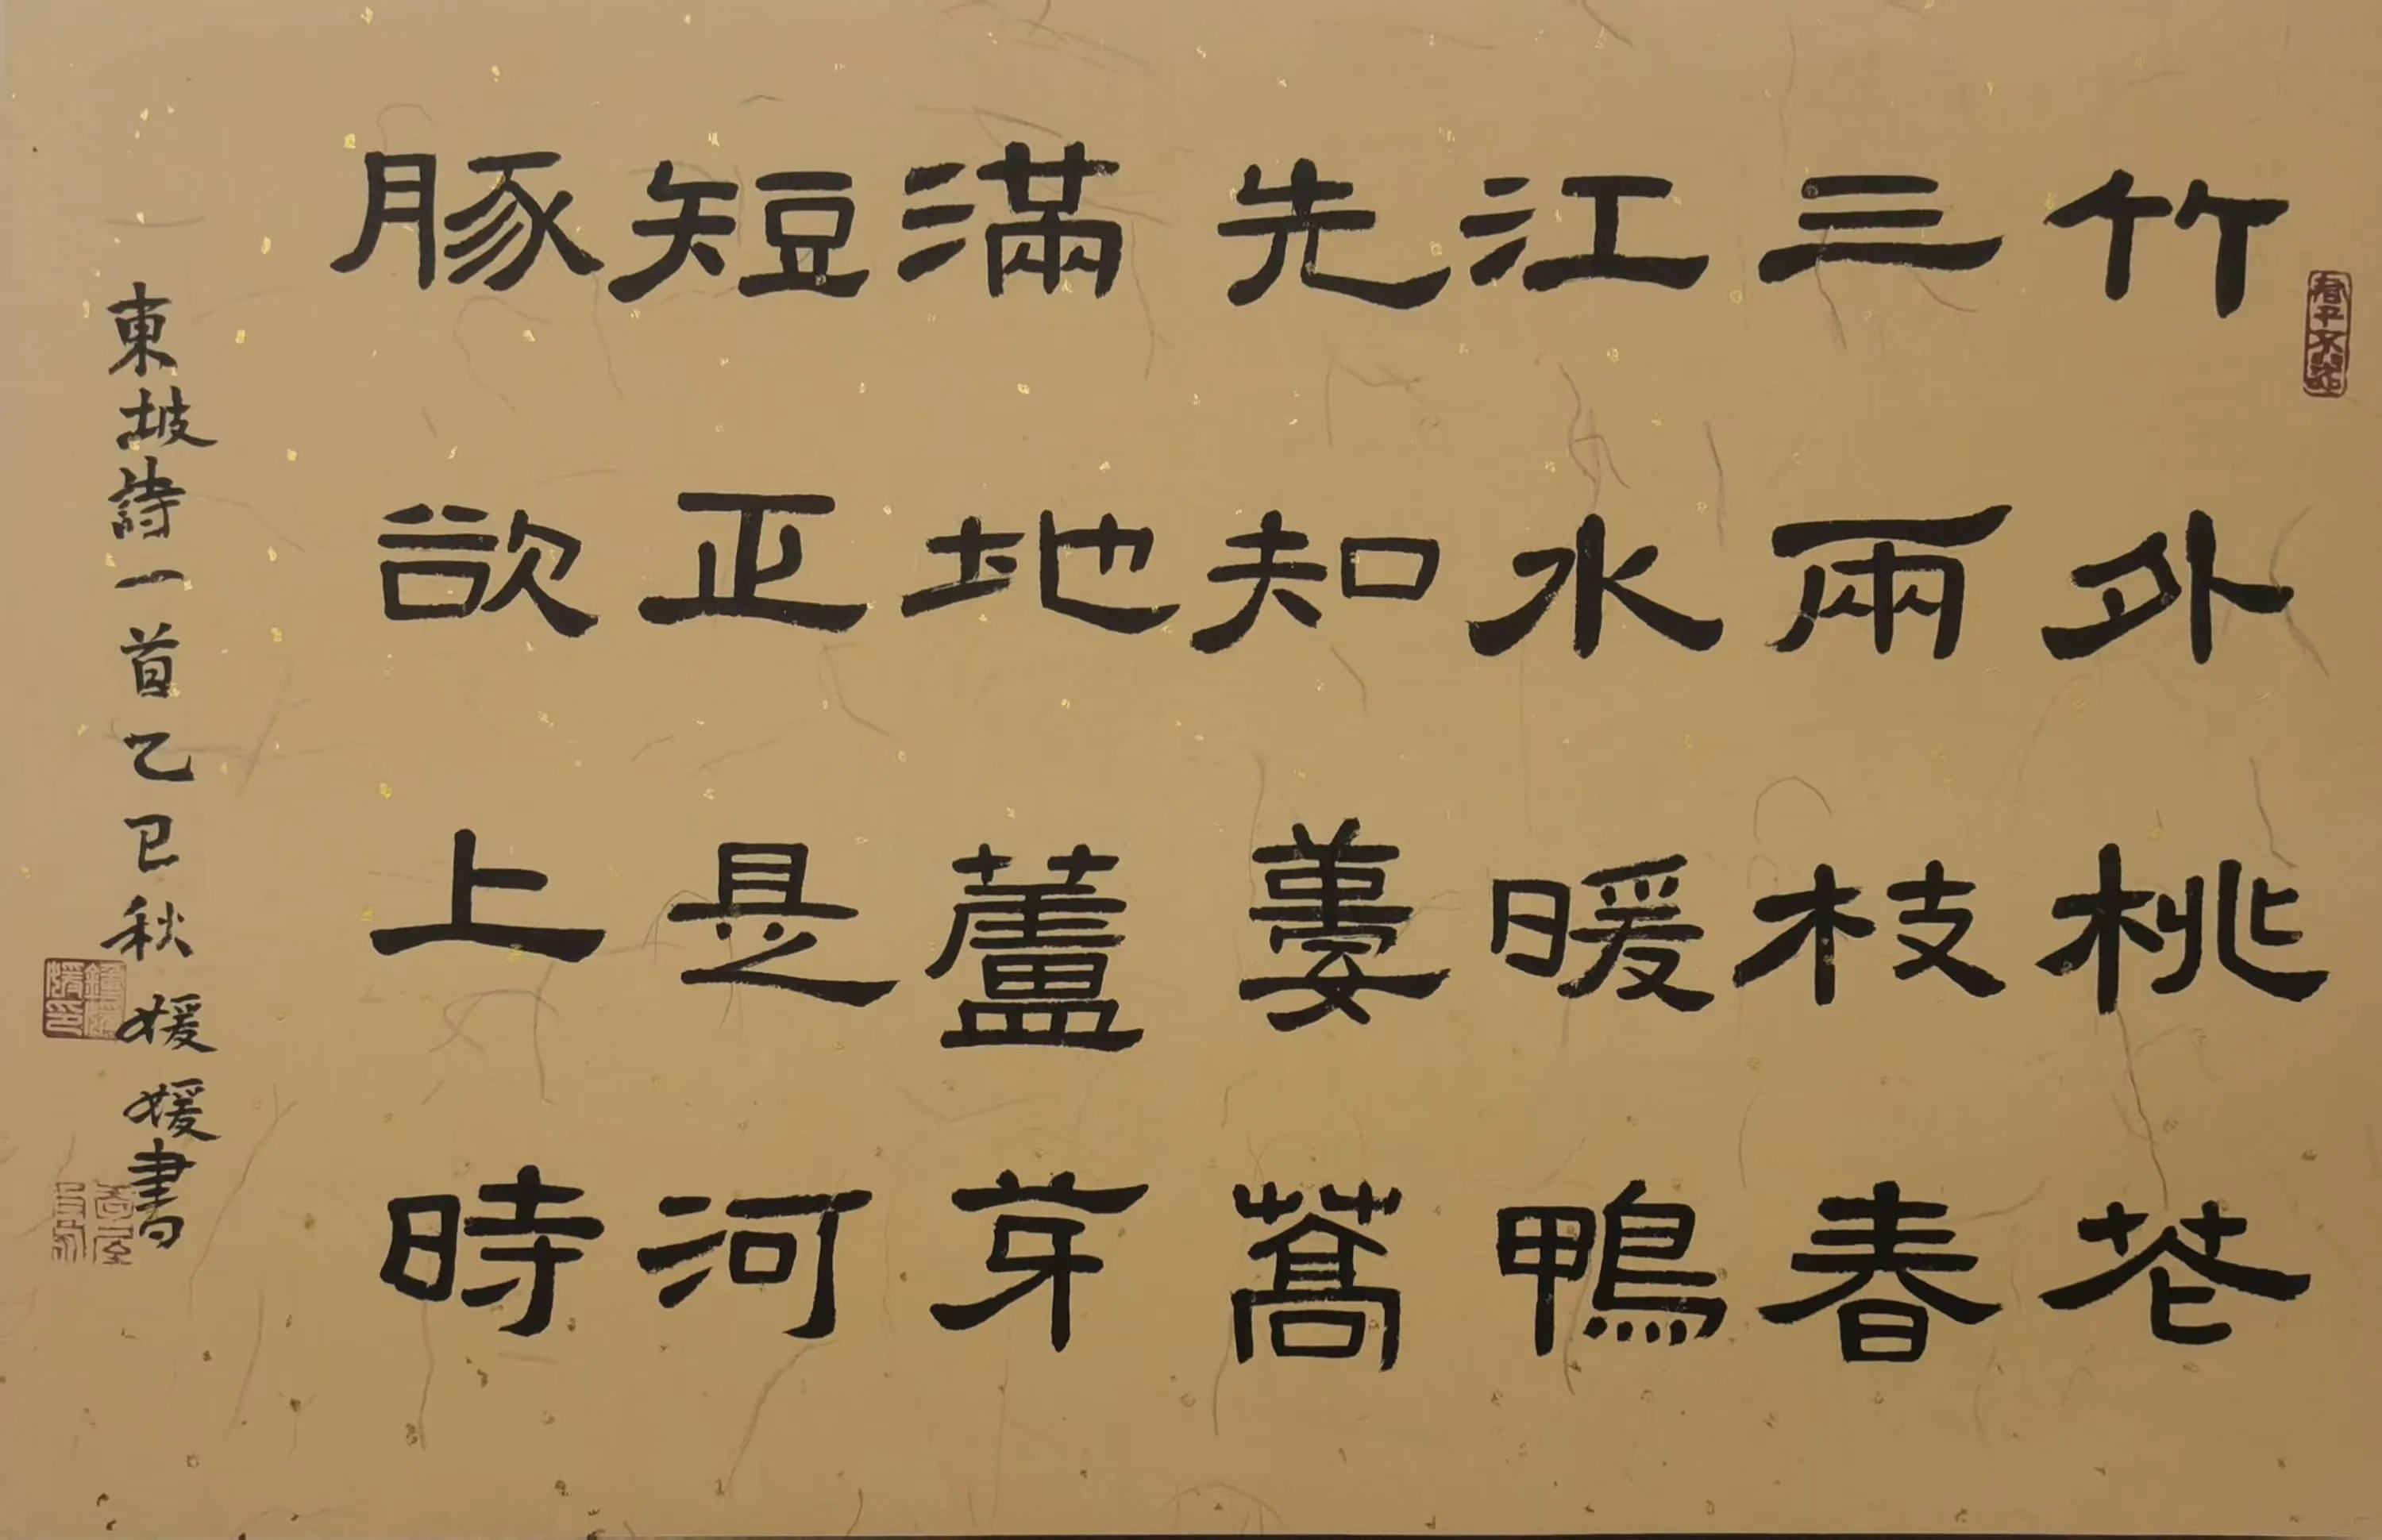 竹外桃花
三兩枝春
江水暖鴨
先知蔞蒿
滿地蘆芽
短正是河
豚欲上時
東坡詩一首乙巳秋媛媛書